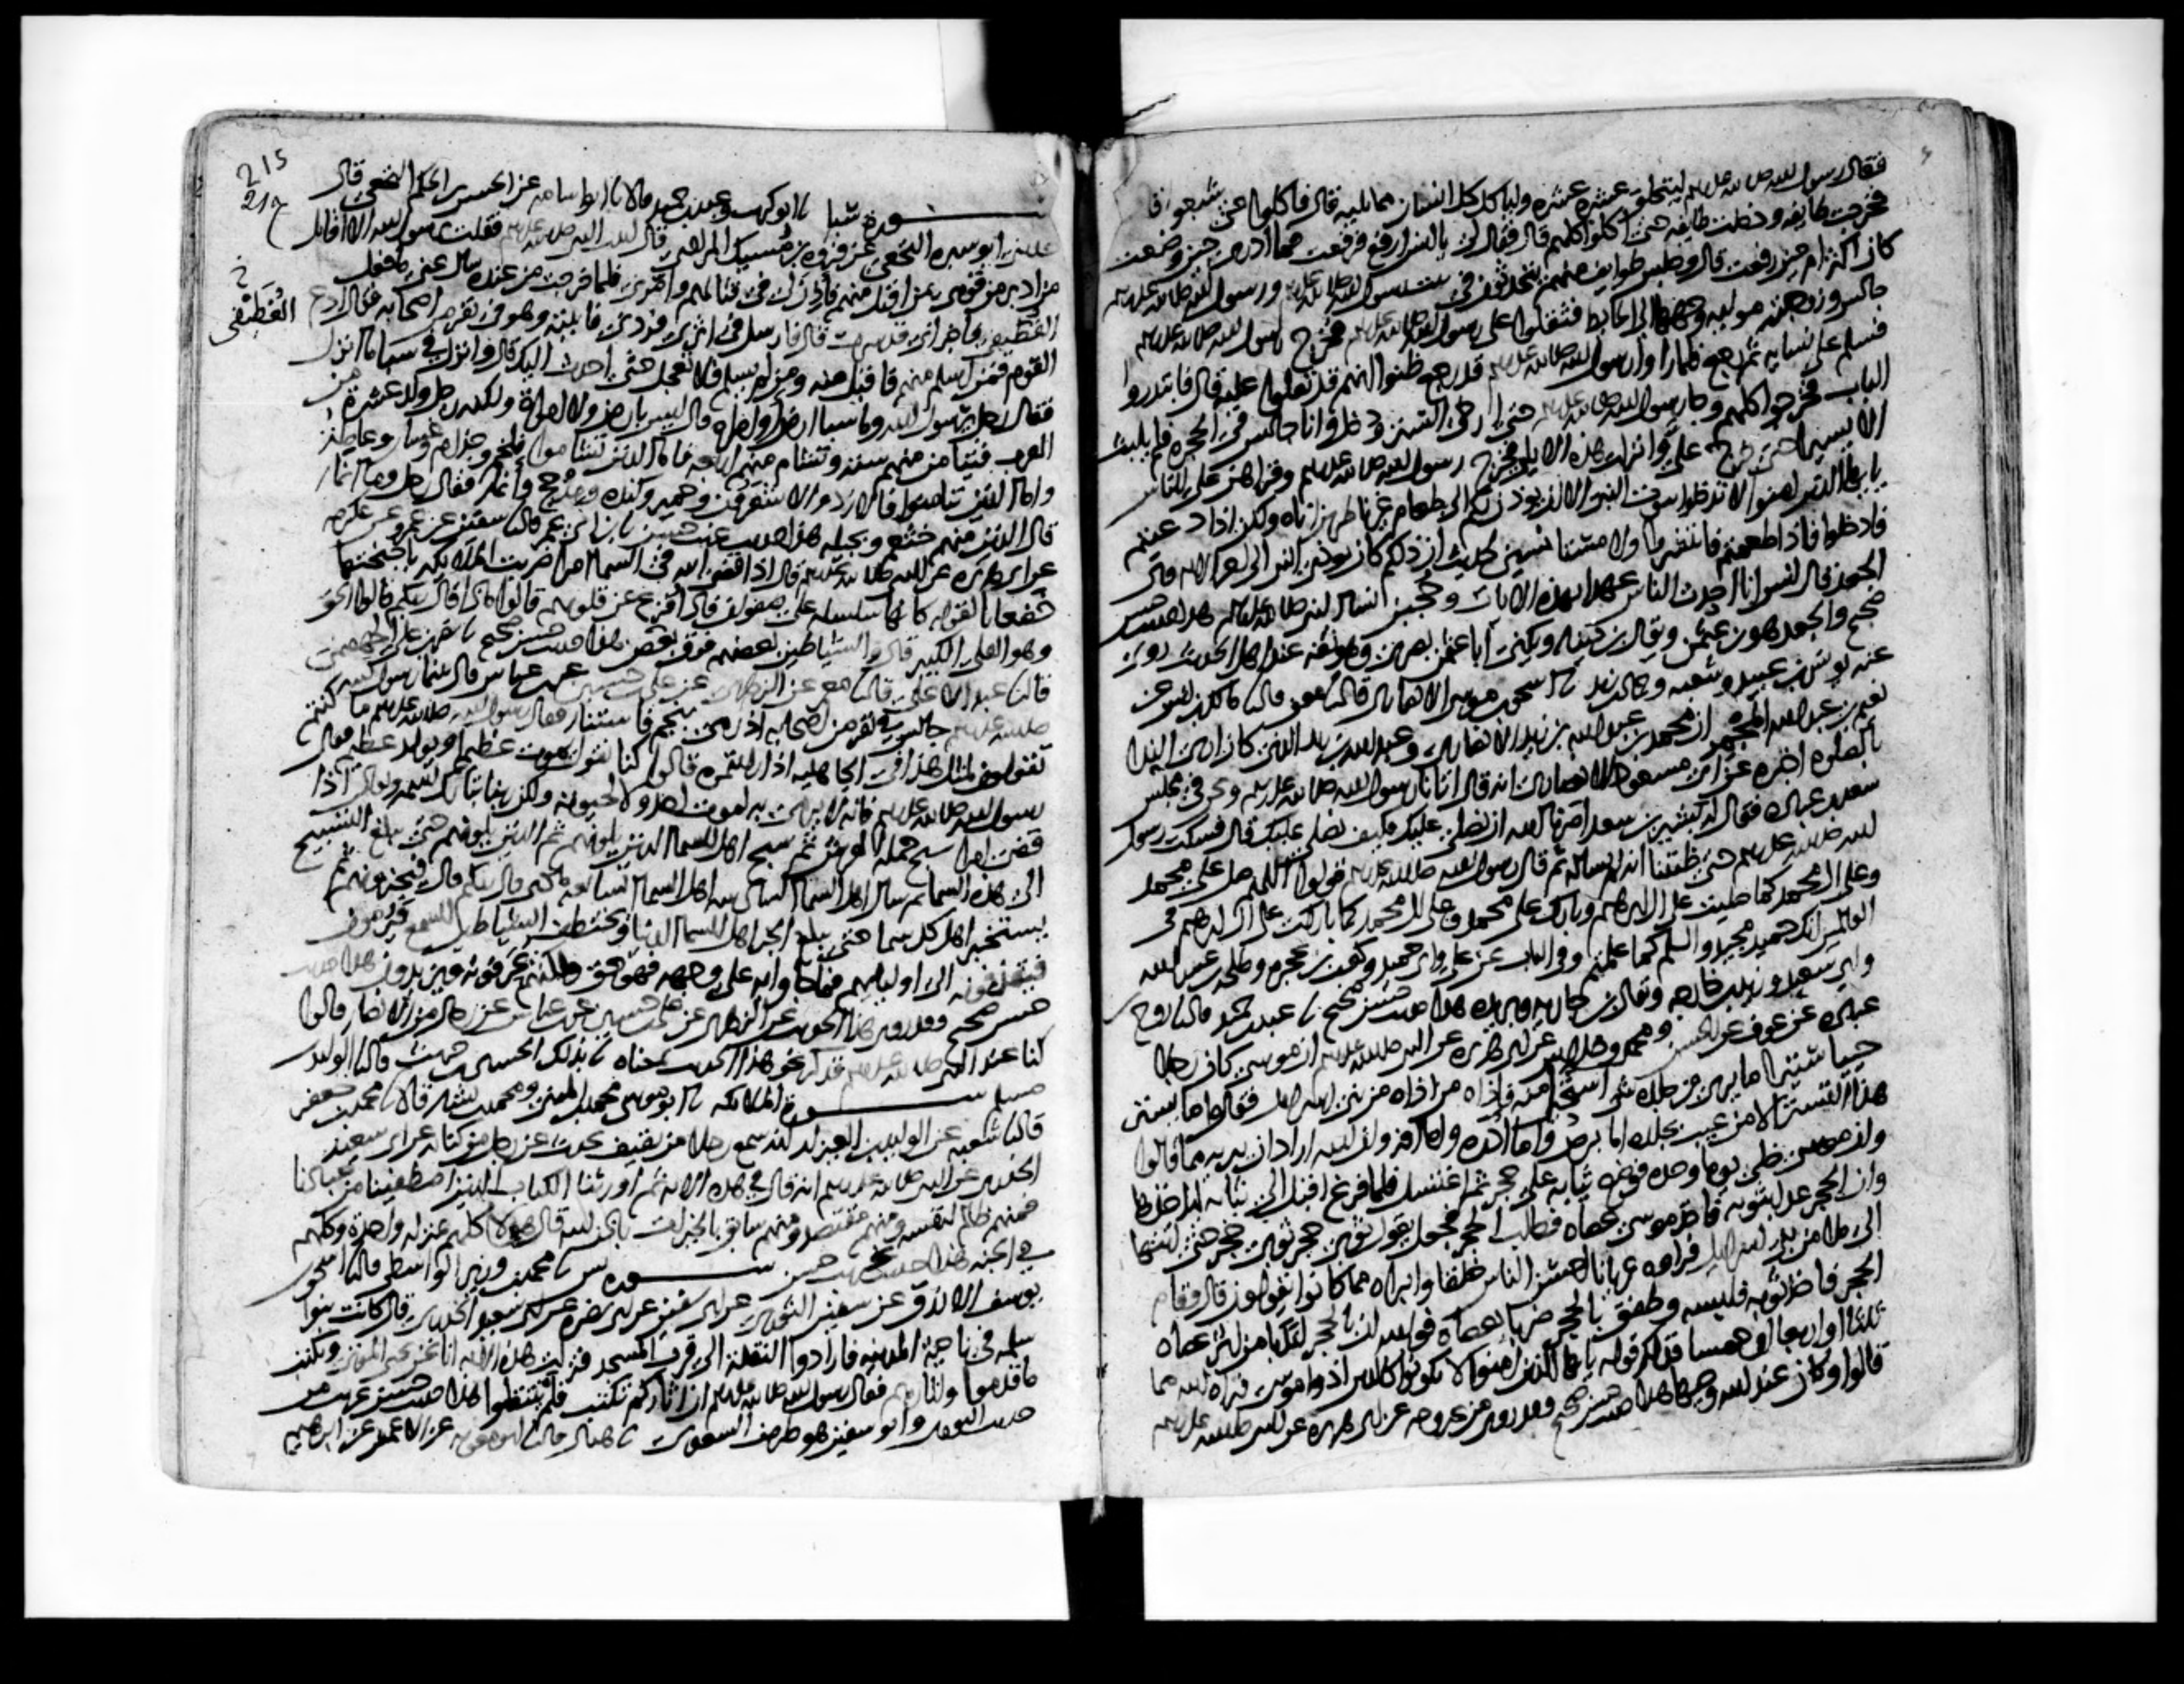 فقال رسول الله صلى الله عليه وسلم ليتحلق عشرة عشرة ولياكل كل انسان مما يليه قال فاكلوا حتى شبعوا قال
فخرجت طايفة ودخلت طايفة حتى اكلوا كلهم قال فقال لي يا انس ارفع فرفعت فما ادري حين وضعت
كان اكثر ام حين رفعت قال وجلس طوايف منهم يتحدثون في بيت رسول الله صلى الله عليه وسلم ورسول الله صلى الله عليه وسلم
جالس وزوجته مولية وجهها الى الحايط فثقلوا على رسول الله صلى الله عليه وسلم فخرج رسول الله صلى الله عليه وسلم
فسلم على نسايه ثم رجع فلما راوا رسول الله صلى الله عليه وسلم قد رجع ظنوا انهم قد ثقلوا عليه قال فابتدروا
الباب فخرجوا كلهم وجا رسول الله صلى الله عليه وسلم حتى ارخى الستر ودخل وانا جالس في الحجرة فلم يلبث
الا يسيرا حتى خرج علي وانزلت هذه الايات فخرج رسول الله صلى الله عليه وسلم وقراهن على الناس
يايها الذين امنوا لا تدخلوا بيوت النبي الا ان يوذن لكم الى طعام غير ناظرين اناه ولكن اذا دعيتم
فادخلوا فاذا طعمتم فانتشروا ولا مستانسين لحديث ان ذلكم كان يوذي النبي الى اخر الاية قال
الجعد قال انس انا احدث الناس عهدا بهذه الايات وحجبن نسا النبي صلى الله عليه وسلم هذا حديث حسن
صحيح والجعد هو بن عثمن ويقال بن دينار ويكنى ابا عثمن بصري وهو ثقة عند اهل الحديث روى
عنه يونس بن عبيد وشعبة وحماد بن زيد نا اسحق بن موسى الانصاري قال نا معن قال نا مالك بن انس عن
نعيم بن عبد الله المجمر ان محمد بن عبد الله بن زيد الانصاري وعبد الله بن زيد الذي كان اري الندا
بالصلوة اخبره عن ابي مسعود الانصاري انه قال اتانا رسول الله صلى الله عليه وسلم ونحن في مجلس
سعد بن عبادة فقال له بشير بن سعد امرنا الله ان نصلي عليك فكيف نصلي عليك قال فسكت رسول
الله صلى الله عليه وسلم حتى ظننا انه لم يساله ثم قال رسول الله صلى الله عليه وسلم قولوا اللهم صل على محمد
وعلى ال محمد كما صليت على ال ابرهيم وبارك على محمد وعلى ال محمد كما باركت على ال ابرهيم في
العالمين انك حميد مجيد والسلم كما علمتم وفي الباب عن علي وابي حميد وكعب بن عجرة وطلحة بن عبيد الله
وابي سعيد وزيد بن خارجة ويقال بن جارية وبريدة هذا حديث حسن صحيح نا عبد بن حميد قال نا روح بن
عبادة عن عوف عن الحسن ومحمد وخلاس عن ابي هريرة عن النبي صلى الله عليه وسلم ان موسى كان رجلا
حييا ستيرا ما يرى من جلده شي استحيا منه فاذاه من اذاه من بني اسرايل فقالوا ما يستتر
هذا التستر الا من عيب بجلده اما برص واما ادرة واما افة وان الله اراد ان يبريه مما قالوا
وان موسى خلى يوما وحده فوضع ثيابه على حجر ثم اغتسل فلما فرغ اقبل الى ثيابه لياخذها
وان الحجر عدا بثوبه فاخذ موسى عصاه فطلب الحجر فجعل يقول ثوبي حجر ثوبي حجر حتى انتهى
الى ملا من بني اسرايل فراوه عريانا احسن الناس خلقا وابراه مما كانوا يقولون قال وقام
الحجر فاخذ ثوبه فلبسه وطفق بالحجر ضربا بعصاه فوالله ان بالحجر لندبا من اثر عصاه
ثلثا او اربعا او خمسا فذلك قوله يايها الذين امنوا لا تكونوا كالذين اذوا موسى فبراه الله مما
قالوا وكان عند الله وجيها هذا حديث حسن صحيح وقد روي من غير وجه عن ابي هريرة عن النبي صلى الله عليه وسلم
215
سورة سبا نا ابو كريب وعبد بن حميد قالا نا ابو اسامة عن الحسن بن الحكم النخعي قال
حدثني ابو سبرة النخعي عن فروة بن مسيك المرادي قال اتيت النبي صلى الله عليه وسلم فقلت يرسول الله الا اقاتل
من ادبر من قومي بمن اقبل منهم فاذن لي في قتالهم وامرني فلما خرجت من عنده سال عني ما فعل
الغطيفي فاخبر اني قد سرت قال فارسل في اثري فردني فاتيته وهو في نفر من اصحابه فقال ادع
الغطيفي
القوم فمن اسلم منهم فاقبل منه ومن لم يسلم فلا تعجل حتى احدث اليك قال وانزل في سبا ما انزل
فقال رجل يرسول الله وما سبا ارض او امراة قال ليس بارض ولا امراة ولكنه رجل ولد عشرة من
العرب فتيامن منهم ستة وتشام منهم اربعة فاما الذين تشاموا فلخم وجذام وغسان وعاملة
واما الذين تيامنوا فالازد والاشعريون وحمير وكندة ومذحج وانمار فقال رجل وما انمار
قال الذين منهم خثعم وبجيلة هذا حديث غريب حسن نا بن ابي عمر قال نا سفين عن عمرو عن عكرمة
عن ابي هريرة عن النبي صلى الله عليه وسلم قال اذا قضى الله في السما امرا ضربت الملايكة باجنحتها
خضعانا لقوله كانها سلسلة على صفوان فاذا فزع عن قلوبهم قالوا ماذا قال ربكم قالوا الحق
وهو العلي الكبير قال والشياطين بعضهم فوق بعض هذا حديث حسن صحيح نا نصر بن علي الجهضمي
قال نا عبد الاعلى قال نا معمر عن الزهري عن علي بن حسين عن بن عباس قال بينما رسول الله
صلى الله عليه وسلم جالس في نفر من اصحابه اذ رمي بنجم فاستنار فقال رسول الله صلى الله عليه وسلم ما كنتم
تقولون لمثل هذا في الجاهلية اذا رايتموه قالوا كنا نقول يموت عظيم او يولد عظيم فقال
رسول الله صلى الله عليه وسلم فانه لا يرمى به لموت احد ولا لحيوته ولكن ربنا تبارك اسمه وتعالى اذا
قضى امرا سبح حملة العرش ثم سبح اهل السما الذين يلونهم ثم الذين يلونهم حتى يبلغ التسبيح
الى هذه السما ثم سال اهل السما السادسة اهل السما السابعة ماذا قال ربكم قال فيخبرونهم ثم
يستخبر اهل كل سما حتى يبلغ الخبر اهل السما الدنيا وتختطف الشياطين السمع فيرمون
فيقذفونه الى اوليايهم فما جاوا به على وجهه فهو حق ولكنهم يحرفونه ويزيدون هذا حديث
حسن صحيح وقد روي هذا الحديث عن الزهري عن علي بن حسين عن بن عباس عن رجال من الانصار قالوا
كنا عند النبي صلى الله عليه وسلم فذكر نحو هذا الحديث بمعناه نا بذلك الحسين بن حريث قال نا الوليد بن
مسلم سورة الملايكة نا ابو موسى محمد بن المثنى ومحمد بن بشار قالا نا محمد بن جعفر
قال نا شعبة عن الوليد بن العيزار انه سمع رجلا من ثقيف يحدث عن رجل من كنانة عن ابي سعيد
الخدري عن النبي صلى الله عليه وسلم انه قال في هذه الاية ثم اورثنا الكتاب الذين اصطفينا من عبادنا
فمنهم ظالم لنفسه ومنهم مقتصد ومنهم سابق بالخيرات باذن الله قال هولا كلهم بمنزلة واحدة وكلهم
في الجنة هذا حديث غريب حسن سورة يس نا محمد بن وزير الواسطي قال نا اسحق بن
يوسف الازرق عن سفين الثوري عن ابي سفين عن ابي نضرة عن ابي سعيد الخدري قال كانت بنوا
سلمة في ناحية المدينة فارادوا النقلة الى قرب المسجد فنزلت هذه الاية انا نحن نحي الموتى ونكتب
ما قدموا واثارهم فقال رسول الله صلى الله عليه وسلم ان اثاركم تكتب فلم ينتقلوا هذا حديث حسن غريب من
حديث الثوري وابو سفين هو طريف السعدي نا هناد قال نا ابو معوية عن الاعمش عن ابرهيم